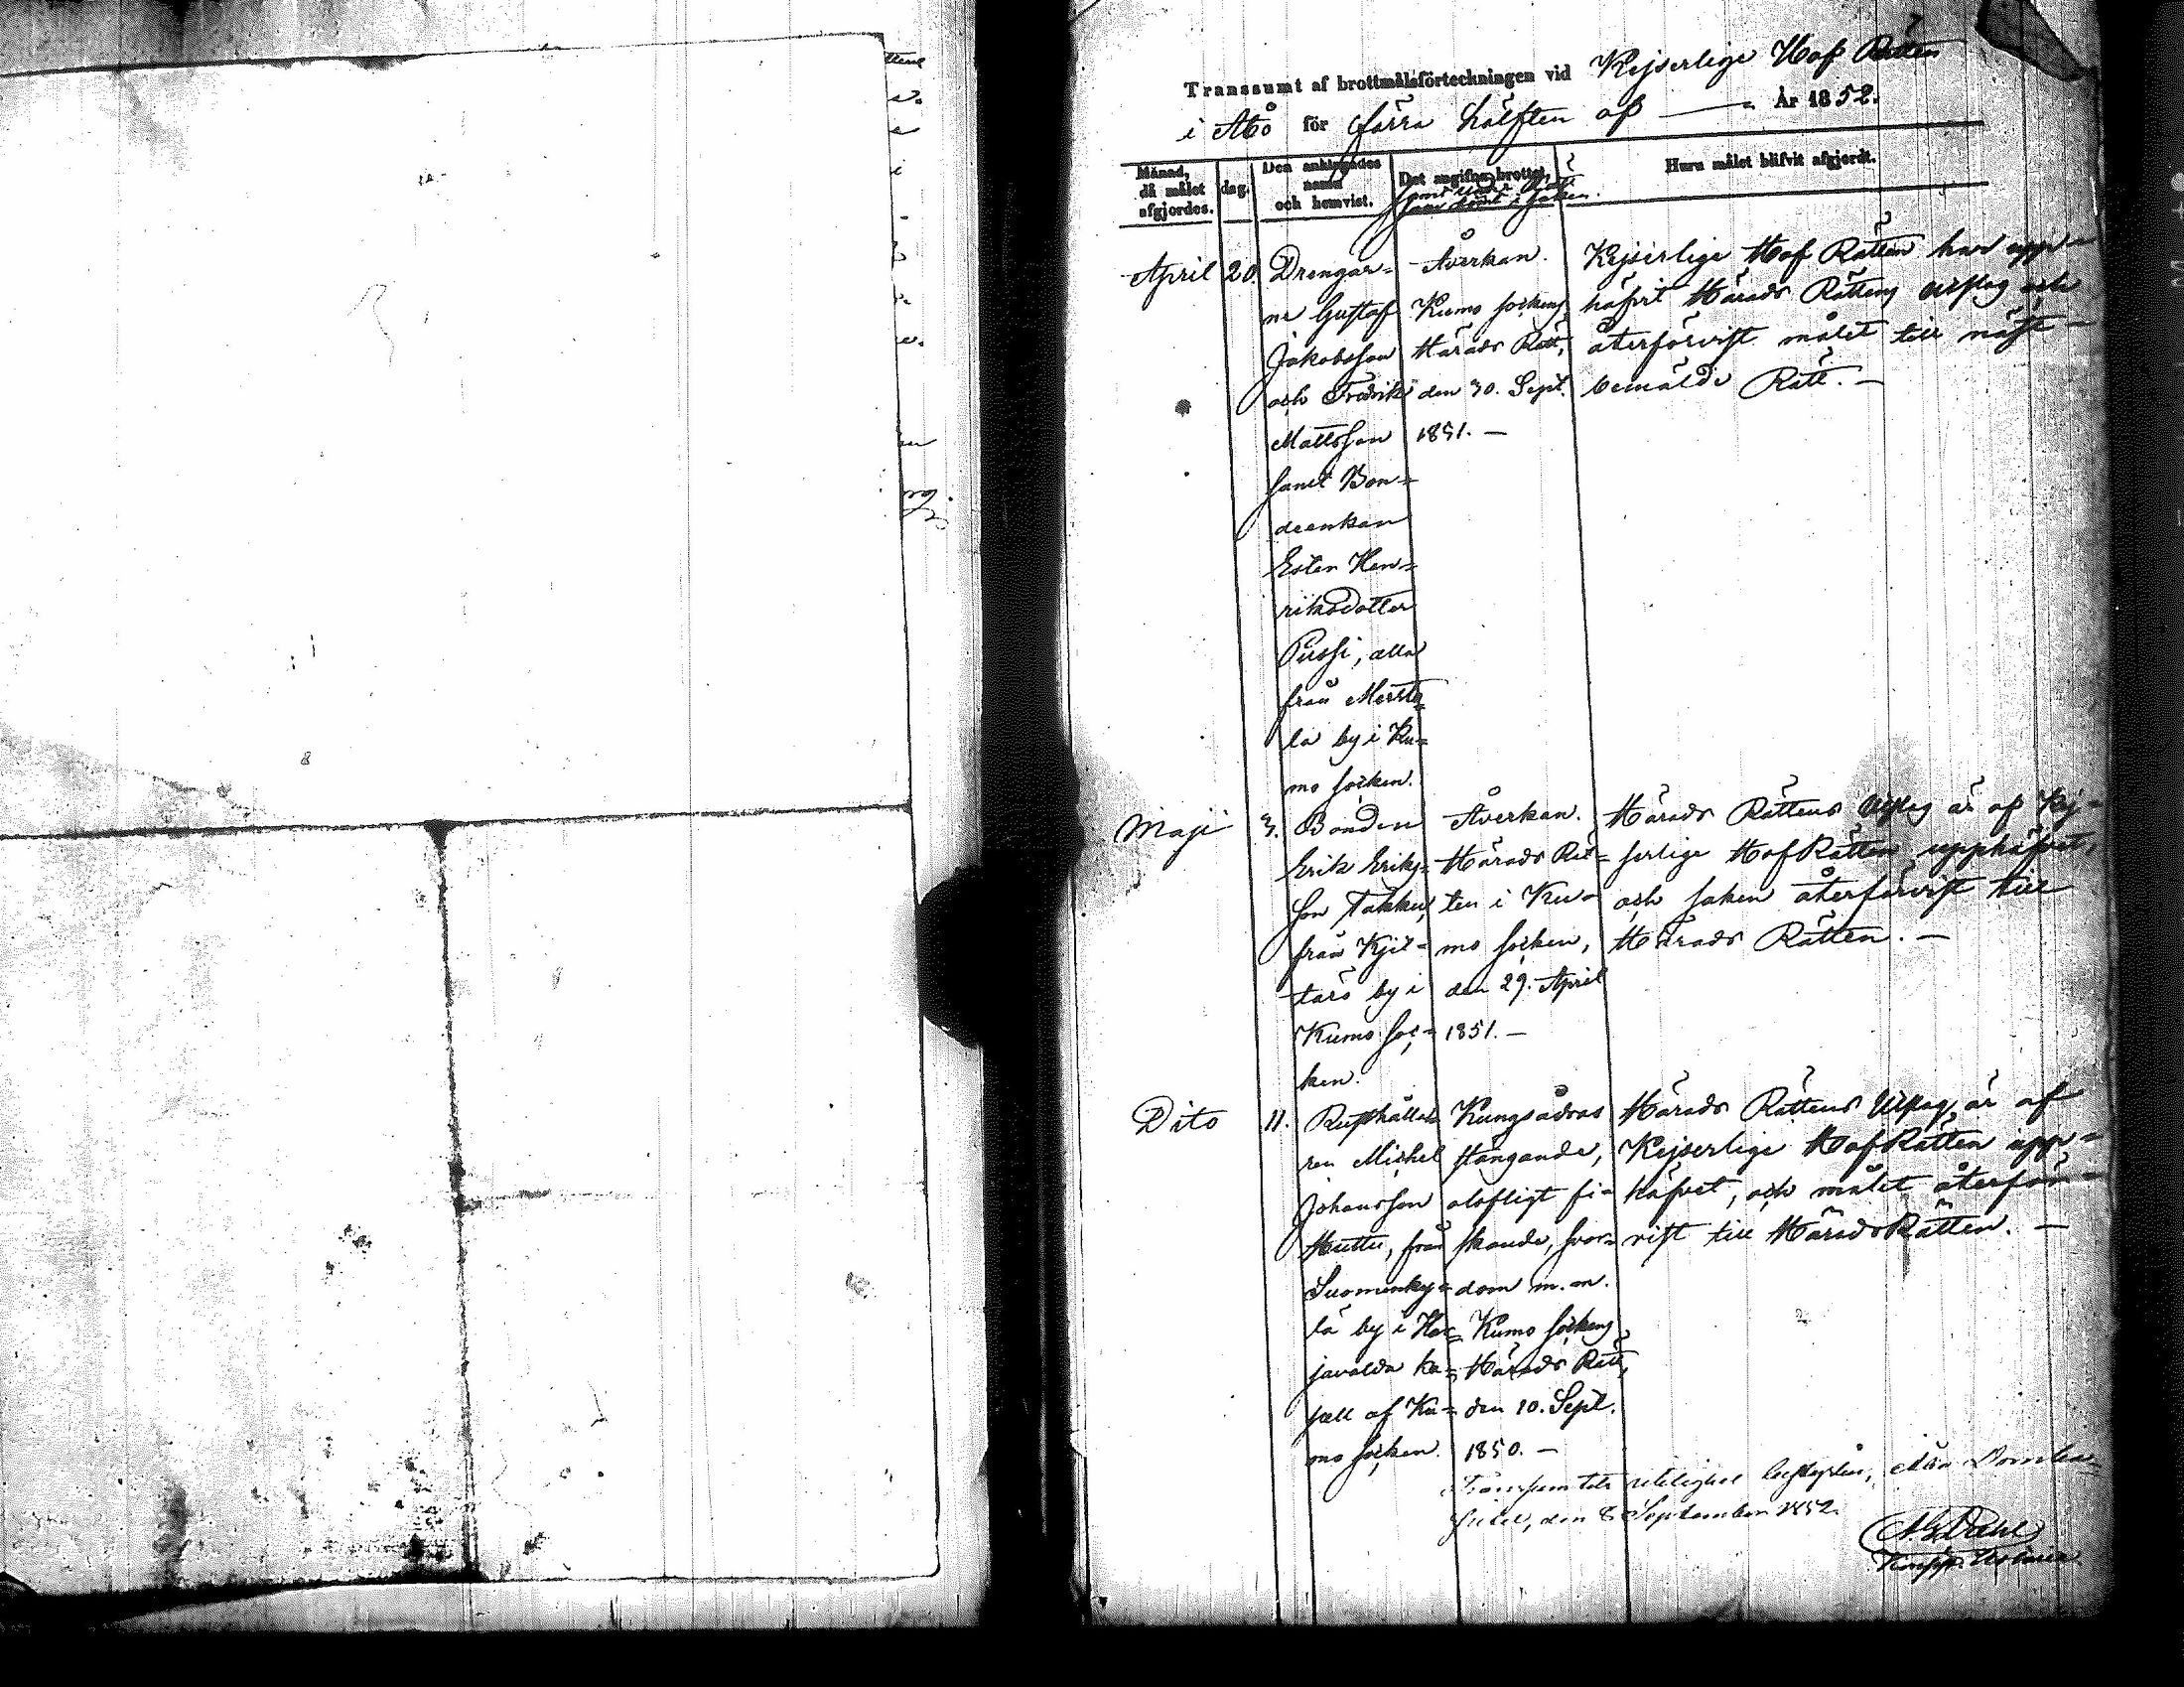 Transsumt af brottmålsförteckningen vid Kejserlige Hof Rätten
i Åbo för förra hälften af — År 1852.
Månad, då målet afgjordes.
dag.
Den anklagades namn och hemvist.
Det angifna brottet,
Huru målet blifvit afgjordt.
April 20.
Drengar=
ne Gustaf
Jakobsson
och Fredrik
Mattsson
samt Bon=
deenkan
Ester Hen=
riksdotter
Pussi, alla
från Meriste=
la by i Ku=
mo socken.
Åverkan.
Kumo sockens
Härads Rätt,
den 30. Sept.
1851. —
Kejserlige Hof Rätten har upp=
häfvit Härads Rättens utslag och
återförvist målet till näst=
bemälde Rätt. —
Maji 3.
Bonden
Erik Eriks=
son Takku,
från Kjet=
tarö by i
Kumo soc=
ken.
Åverkan.
Härads Rät=
ten i Ku=
mo socken,
den 29. April
1851. —
Härads Rättens Utslag är af Kej=
serlige Hof Rätten upphäfvet,
och saken återförvist till
Härads Rätten. —
Dito 11.
Rusthålla=
ren Michel
Johansson
Huttu, från
Suomenky=
lä by i Har=
javalda ka=
pell af Ku=
mo socken.
Kungsådras
stängande,
olofligt fi=
skande, svor=
dom m. m.
Kumo sockens
Härads Rätt,
den 10. Sept.
1850. —
Härads Rättens Utslag är af
Kejserlige Hof Rätten upp=
häfvet, och målet återför=
vist till Härads Rätten. —
Transsumtets riktighet
den 8 September 1852.